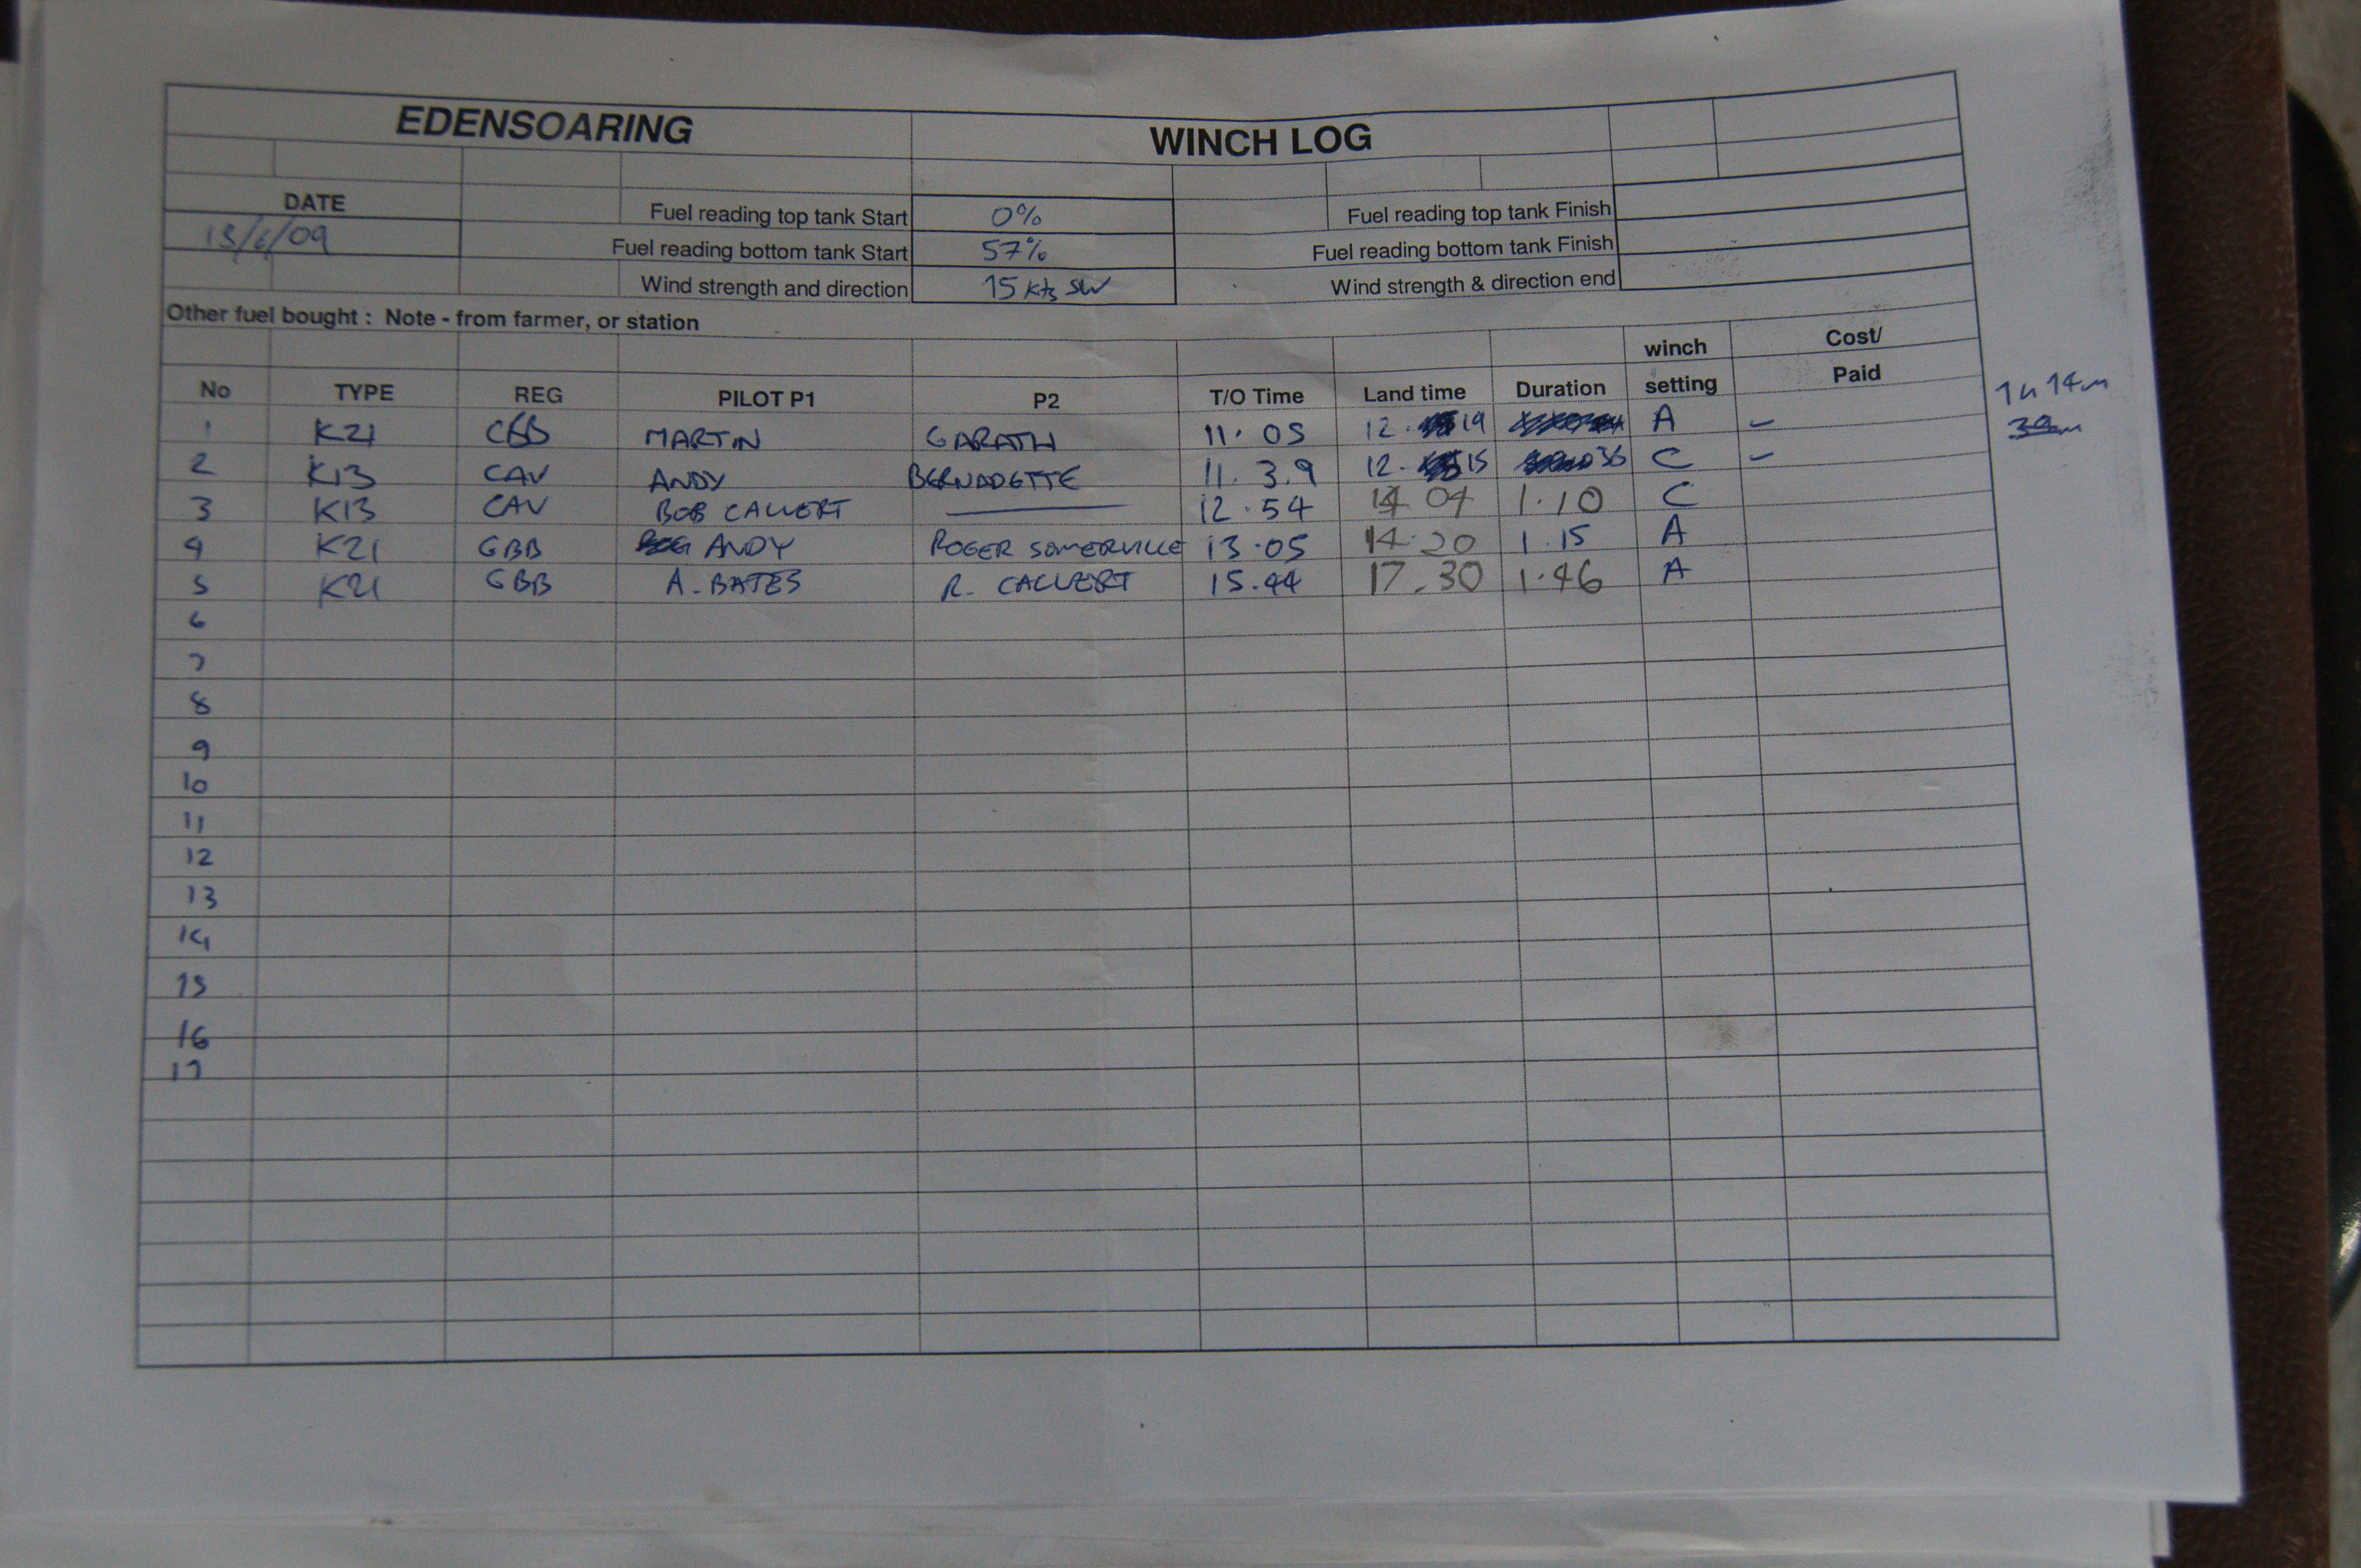 EDENSOARING WINCH LOG
DATE
Fuel reading top tank Start 0% Fuel reading top tank Finish
13/6/09 Fuel reading bottom tank Start 57% Fuel reading bottom tank Finish
Wind strength and direction 15 kts SW Wind strength & direction end
Other fuel bought : Note - from farmer, or station
winch Cost/
No TYPE REG PILOT P1 P2 T/O Time Land time Duration setting Paid
1h 14m
1 K21 GBB MARTIN GARATH 11.05 12. 19 A -
2 K13 CAV ANDY BERNADETTE 11.39 12. 15 36 C -
3 K13 CAV BOB CALVERT 12.54 14 04 1.10 C
4 K21 GBB ANDY ROGER SOMERVILLE 13.05 14.20 1.15 A
5 K21 GBB A. BATES R. CALVERT 15.44 17.30 1.46 A
6
7
8
9
10
11
12
13
14
15
16
17